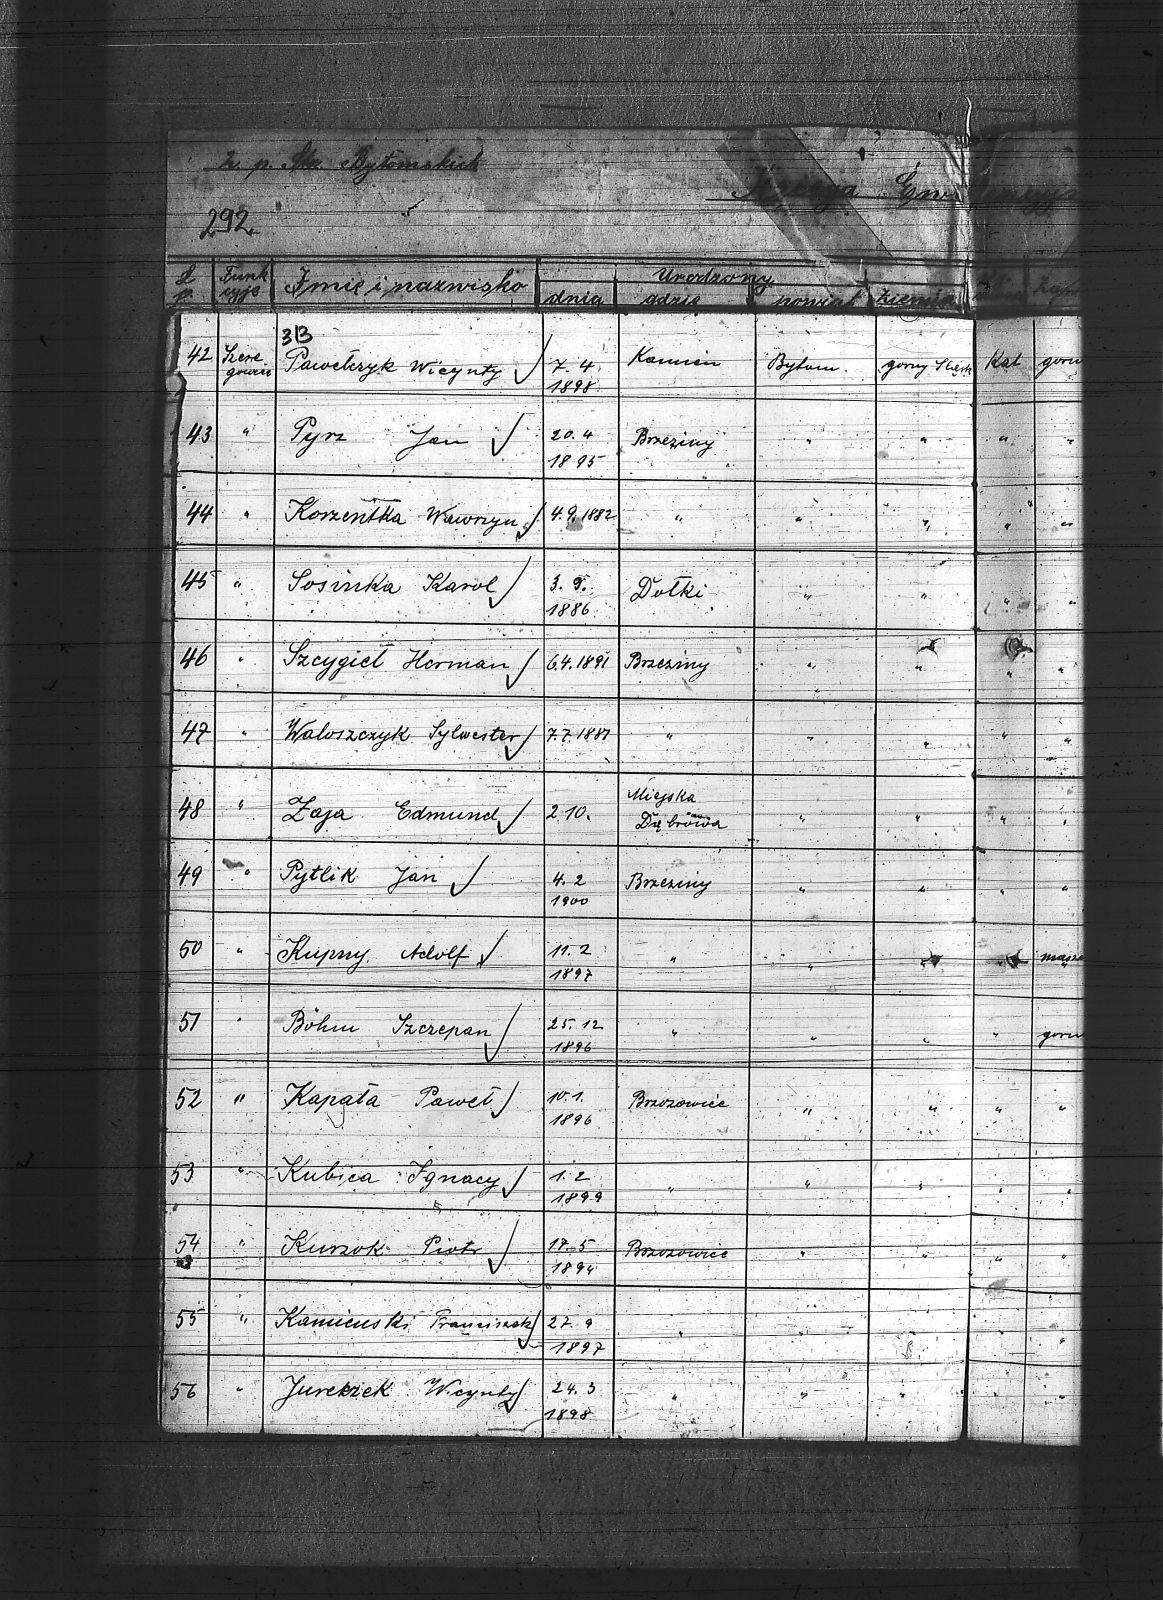 2. p. Bytomskich
292.
L. p. Funkcyje Imię i nazwisko Urodzony
dnia gdzie powiat ziemia
3B
42 Szeregowiec Pawelczyk Wicynty 7. 4. 1898 Kamień Bytom gorny Śląsk Kat gorn
43 " Pyrz Jan 20. 4 1895 Brzeziny " " " "
44 " Korzentka Wawrzyn 4. 9. 1882 " " " " "
45 " Sosinka Karol 3. 9. 1886 Dołki " " " "
46 " Szczygieł Herman 6. 4. 1891 Brzeziny " " " "
47 " Waloszczyk Sylwester 7. 7. 1887 " " " " "
48 " Zaja Edmund 2 10. Miejska Dąbrowa " " " "
49 " Pytlik Jan 4. 2 1900 Brzeziny " " " "
50 " Kupny Adolf 11. 2 1897 " " " " masz
51 " Böhm Szczepan 25. 12 1896 " " " " gorn
52 " Kapała Paweł 10. 1. 1896 Brzozowice " " " "
53 " Kubica Ignacy 1. 2 1899 " " " " "
54 " Kurzok Piotr 17. 5 1894 Brzozowice " " " "
55 " Kamienski Franciszek 27. 9 1897 " " " " "
56 " Jureczek Wicynty 24. 3 1898 " " " " "